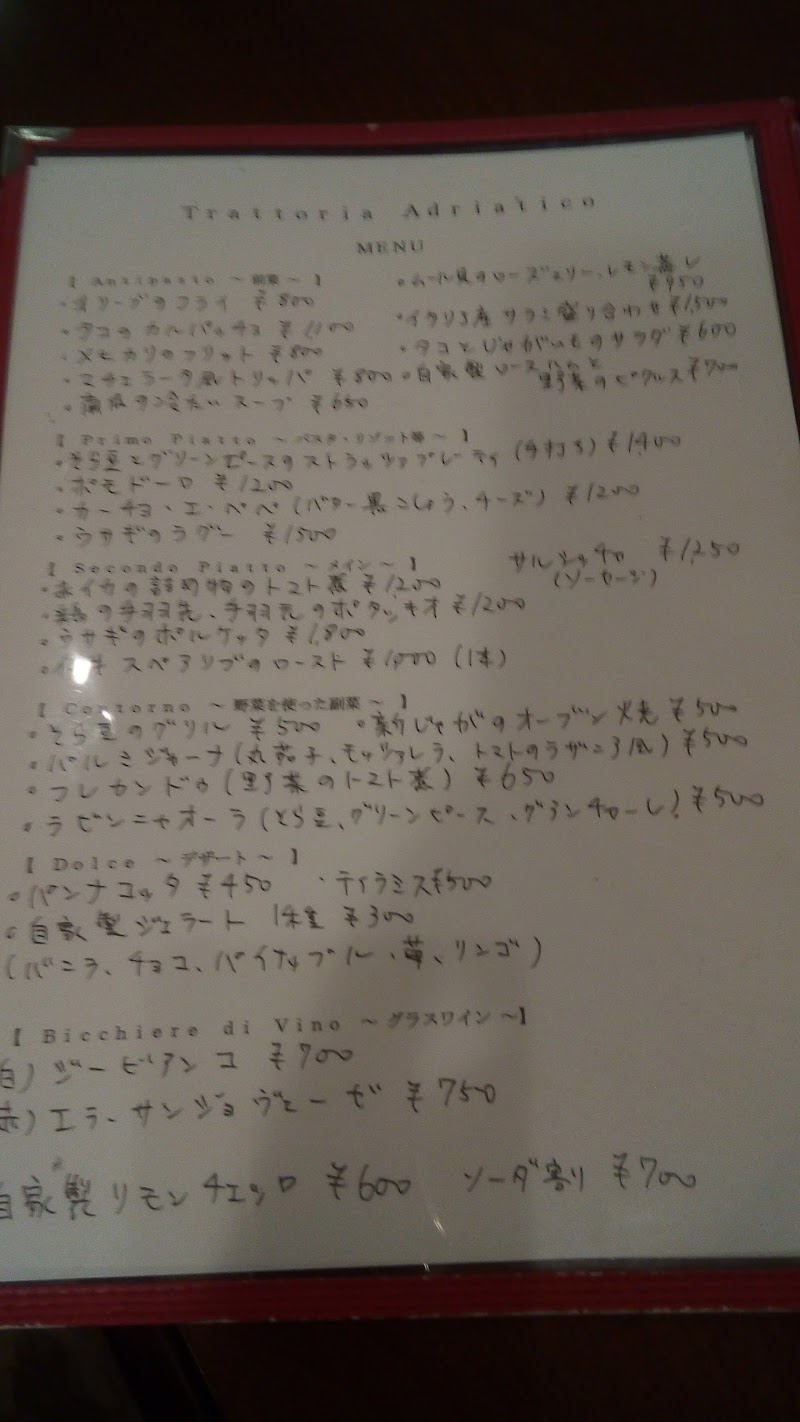 Trattoria Adriatico
MENU
【 Antipasto ~ 副菜 ~ 】
・オリーブのフライ ¥800
・タコのカルパッチョ ¥1,100
・メヒカリのフリット ¥800
・マチェラータ風トリッパ ¥800
・南瓜の冷たいスープ ¥650
・ムール貝のローズマリー、レモン蒸し ¥950
・イタリア産サラミ盛り合わせ ¥1,500
・タコとじゃがいものサラダ ¥600
・自家製ロースハムと
野菜のピクルス ¥700
【 Primo Piatto ~ パスタ・リゾット等 ~ 】
・そら豆とグリーンピースのストラッツァプレーティ (手打ち) ¥1,400
・ポモドーロ ¥1200
・カーチョ・エ・ペペ (バター黒こしょう、チーズ) ¥1200
・ウサギのラグー ¥1500
【 Secondo Piatto ~ メイン ~ 】
・赤イカの詰め物のトマト煮 ¥1,200
・鶏の手羽先、手羽元のポタッキオ ¥1200
・ウサギのポルケッタ ¥1,800
・スペアリブのロースト ¥1,000 (1本)
サルシッチャ ¥1,250
(ソーセージ)
【 Cortorno ~ 野菜を使った副菜 ~ 】
・そら豆のグリル ¥500 ・新じゃがのオーブン焼 ¥500
・パルミジャーナ (丸茄子、モッツァレラ、トマトのラザニア風) ¥500
・フレカンドゥ (野菜のトマト煮) ¥650
・ラビンニャオーラ (そら豆、グリーンピース、グアンチャーレ) ¥500
【 Dolce ~ デザート ~ 】
・パンナコッタ ¥450 ・ティラミス ¥500
・自家製ジェラート 1種 ¥300
(バニラ、チョコ、パイナップル、苺、リンゴ)
【 Bicchiere di Vino ~ グラスワイン ~】
白) ジービアンコ ¥700
赤) エラ・サンジョヴェーゼ ¥750
自家製リモンチェッロ ¥600 ソーダ割り ¥700